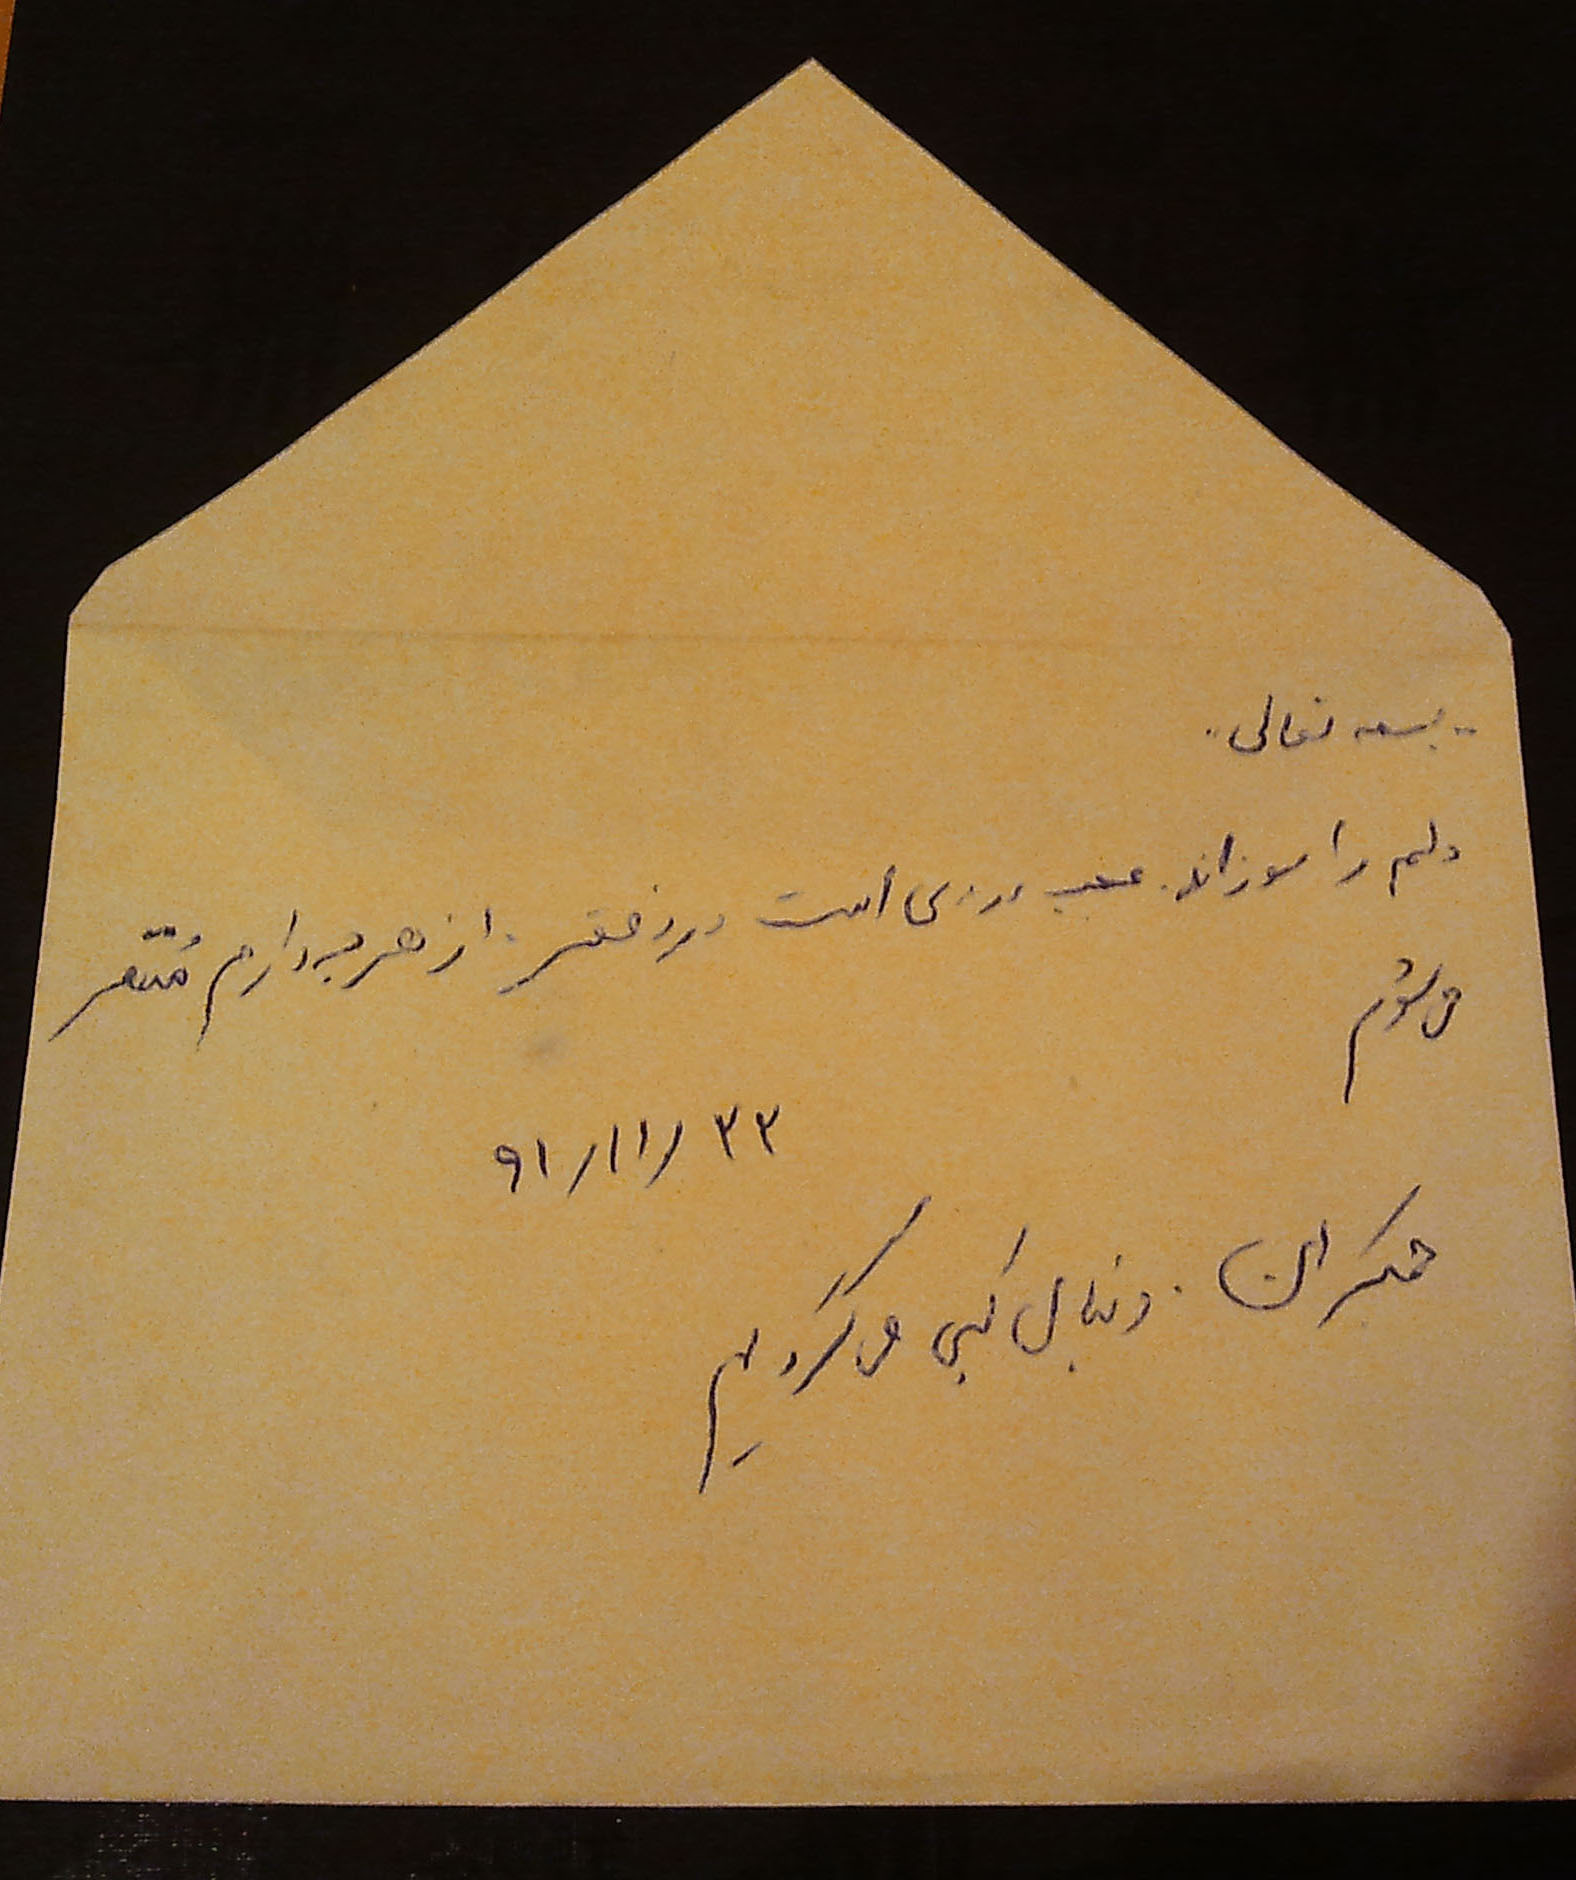 "بسمه تعالی"
دلم را سوزاند. عجب دردی است درد فقر. از هرچه دارم مُتنفر
می شوم
۹۱/۱۱/۲۲
جمکران. دنبال کسی می گردیم